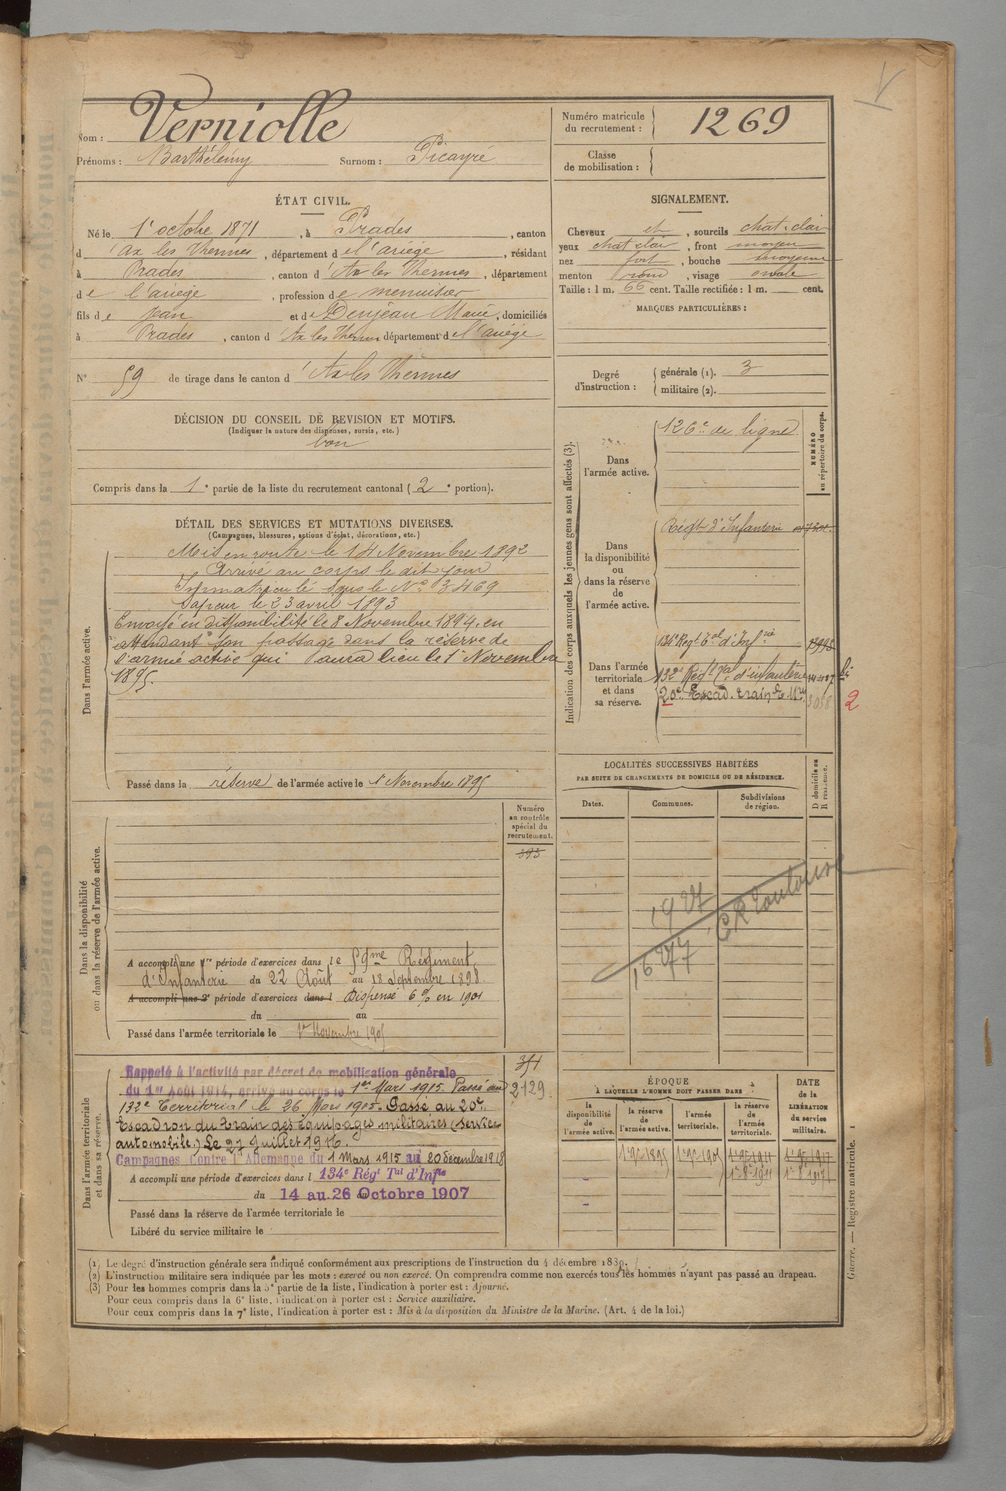 Nom : Verniolle
Prénoms : Barthélémy Surnom : Picayré
Numéro matricule du recrutement : 1269
Classe de mobilisation :
ÉTAT CIVIL.
Né le 1er octobre 1871, à Prades, canton
d'Ax les Thermes, département de l'ariège, résidant
à Prades, canton d'Ax les Thermes, département
de l'ariège, profession de menuisier
fils de Jean et de Denjean Marie, domiciliés
à Prades, canton d'Ax les Thermes département de l'ariège
N° 59 de tirage dans le canton d'Ax les Thermes
SIGNALEMENT.
Cheveux et, sourcils chat. clair
yeux chat clair, front moyen
nez fort, bouche moyenne
menton rond, visage ovale
Taille : 1 m. 66 cent. Taille rectifiée : 1 m. cent.
MARQUES PARTICULIÈRES :
Degré d'instruction : générale (1). 3
militaire (2).
DÉCISION DU CONSEIL DE REVISION ET MOTIFS.
(Indiquer la nature des dispenses, sursis, etc.)
bon
Compris dans la 1e partie de la liste du recrutement cantonal (2e portion).
DÉTAIL DES SERVICES ET MUTATIONS DIVERSES.
(Campagnes, blessures, actions d'éclat, décorations, etc.)
Dans l'armée active.
Mis en route le 14 Novembre 1892
Arrivé au corps le dit jour
Immatriculé sous le No 3469
Sapeur le 23 avril 1893
Envoyé en disponibilité le 8 Novembre 1894 en
attendant son passage dans la réserve de
l'armée active qui l'aura lieu le 1er Novembre
1895.
Passé dans la réserve de l'armée active le 1er Novembre 1895
Indication des corps auxquels les jeunes gens sont affectés (3).
NUMÉRO au répertoire du corps.
Dans l'armée active. 126e de ligne
Dans la disponibilité ou dans la réserve de l'armée active. Régt d'Infanterie
Dans l'armée territoriale et dans sa réserve.
134e Regt Tal d'Infie
132e Regt Tal d'infanterie
20e Escad. train E. Mres
2
LOCALITÉS SUCCESSIVES HABITÉES
PAR SUITE DE CHANGEMENTS DE DOMICILE OU DE RÉSIDENCE.
D domicile ou R résidence.
Dates. Communes. Subdivisions de région.
1927
1677
CR Toulouse
Dans la disponibilité ou dans la réserve de l'armée active.
Numéro au contrôle spécial du recrutement.
393
A accompli une 1re période d'exercices dans le 59me Régiment
d'Infanterie du 22 Août au 18 Septembre 1898
A accompli une 2e période d'exercices dans l Dispensé 6 % en 1901
du au
Passé dans l'armée territoriale le 1er Novembre 1905
Dans l'armée territoriale et dans sa réserve.
351
2129
Rappelé à l'activité par décret de mobilisation générale
du 1er Août 1914, arrivé au corps le 1er Mars 1915. Passé au
132e Territorial le 26 Mars 1915. Passé au 20e
Escadron du train des équipages militaires (Service
automobile) Le 27 Juillet 1916.
Campagnes Contre l'Allemagne du 1 Mars 1915 au 20 décembre 1918
A accompli une période d'exercices dans l 134e Rég Tal d'Infie
du 14 au 26 Octobre 1907
Passé dans la réserve de l'armée territoriale le
Libéré du service militaire le
ÉPOQUE
A LAQUELLE L'HOMME DOIT PASSER DANS
la disponibilité de l'armée active. la réserve de l'armée active. l'armée territoriale. la réserve de l'armée territoriale.
DATE DE LA LIBÉRATION du service militaire.
1er 9bre 1895 1er 9bre 1905 1er 9bre 1911 1er 9bre 1917
1er 8bre 1911 1er 8bre 1917
Guerre. — Registre matricule. 1
(1) Le degré d'instruction générale sera indiqué conformément aux prescriptions de l'instruction du 4 décembre 1889.
(2) L'instruction militaire sera indiquée par les mots : exercé ou non exercé. On comprendra comme non exercés tous les hommes n'ayant pas passé au drapeau.
(3) Pour les hommes compris dans la 5e partie de la liste, l'indication à porter est : Ajourné.
Pour ceux compris dans la 6e liste, l'indication à porter est : Service auxiliaire.
Pour ceux compris dans la 7e liste, l'indication à porter est : Mis à la disposition du Ministre de la Marine. (Art. 4 de la loi.)